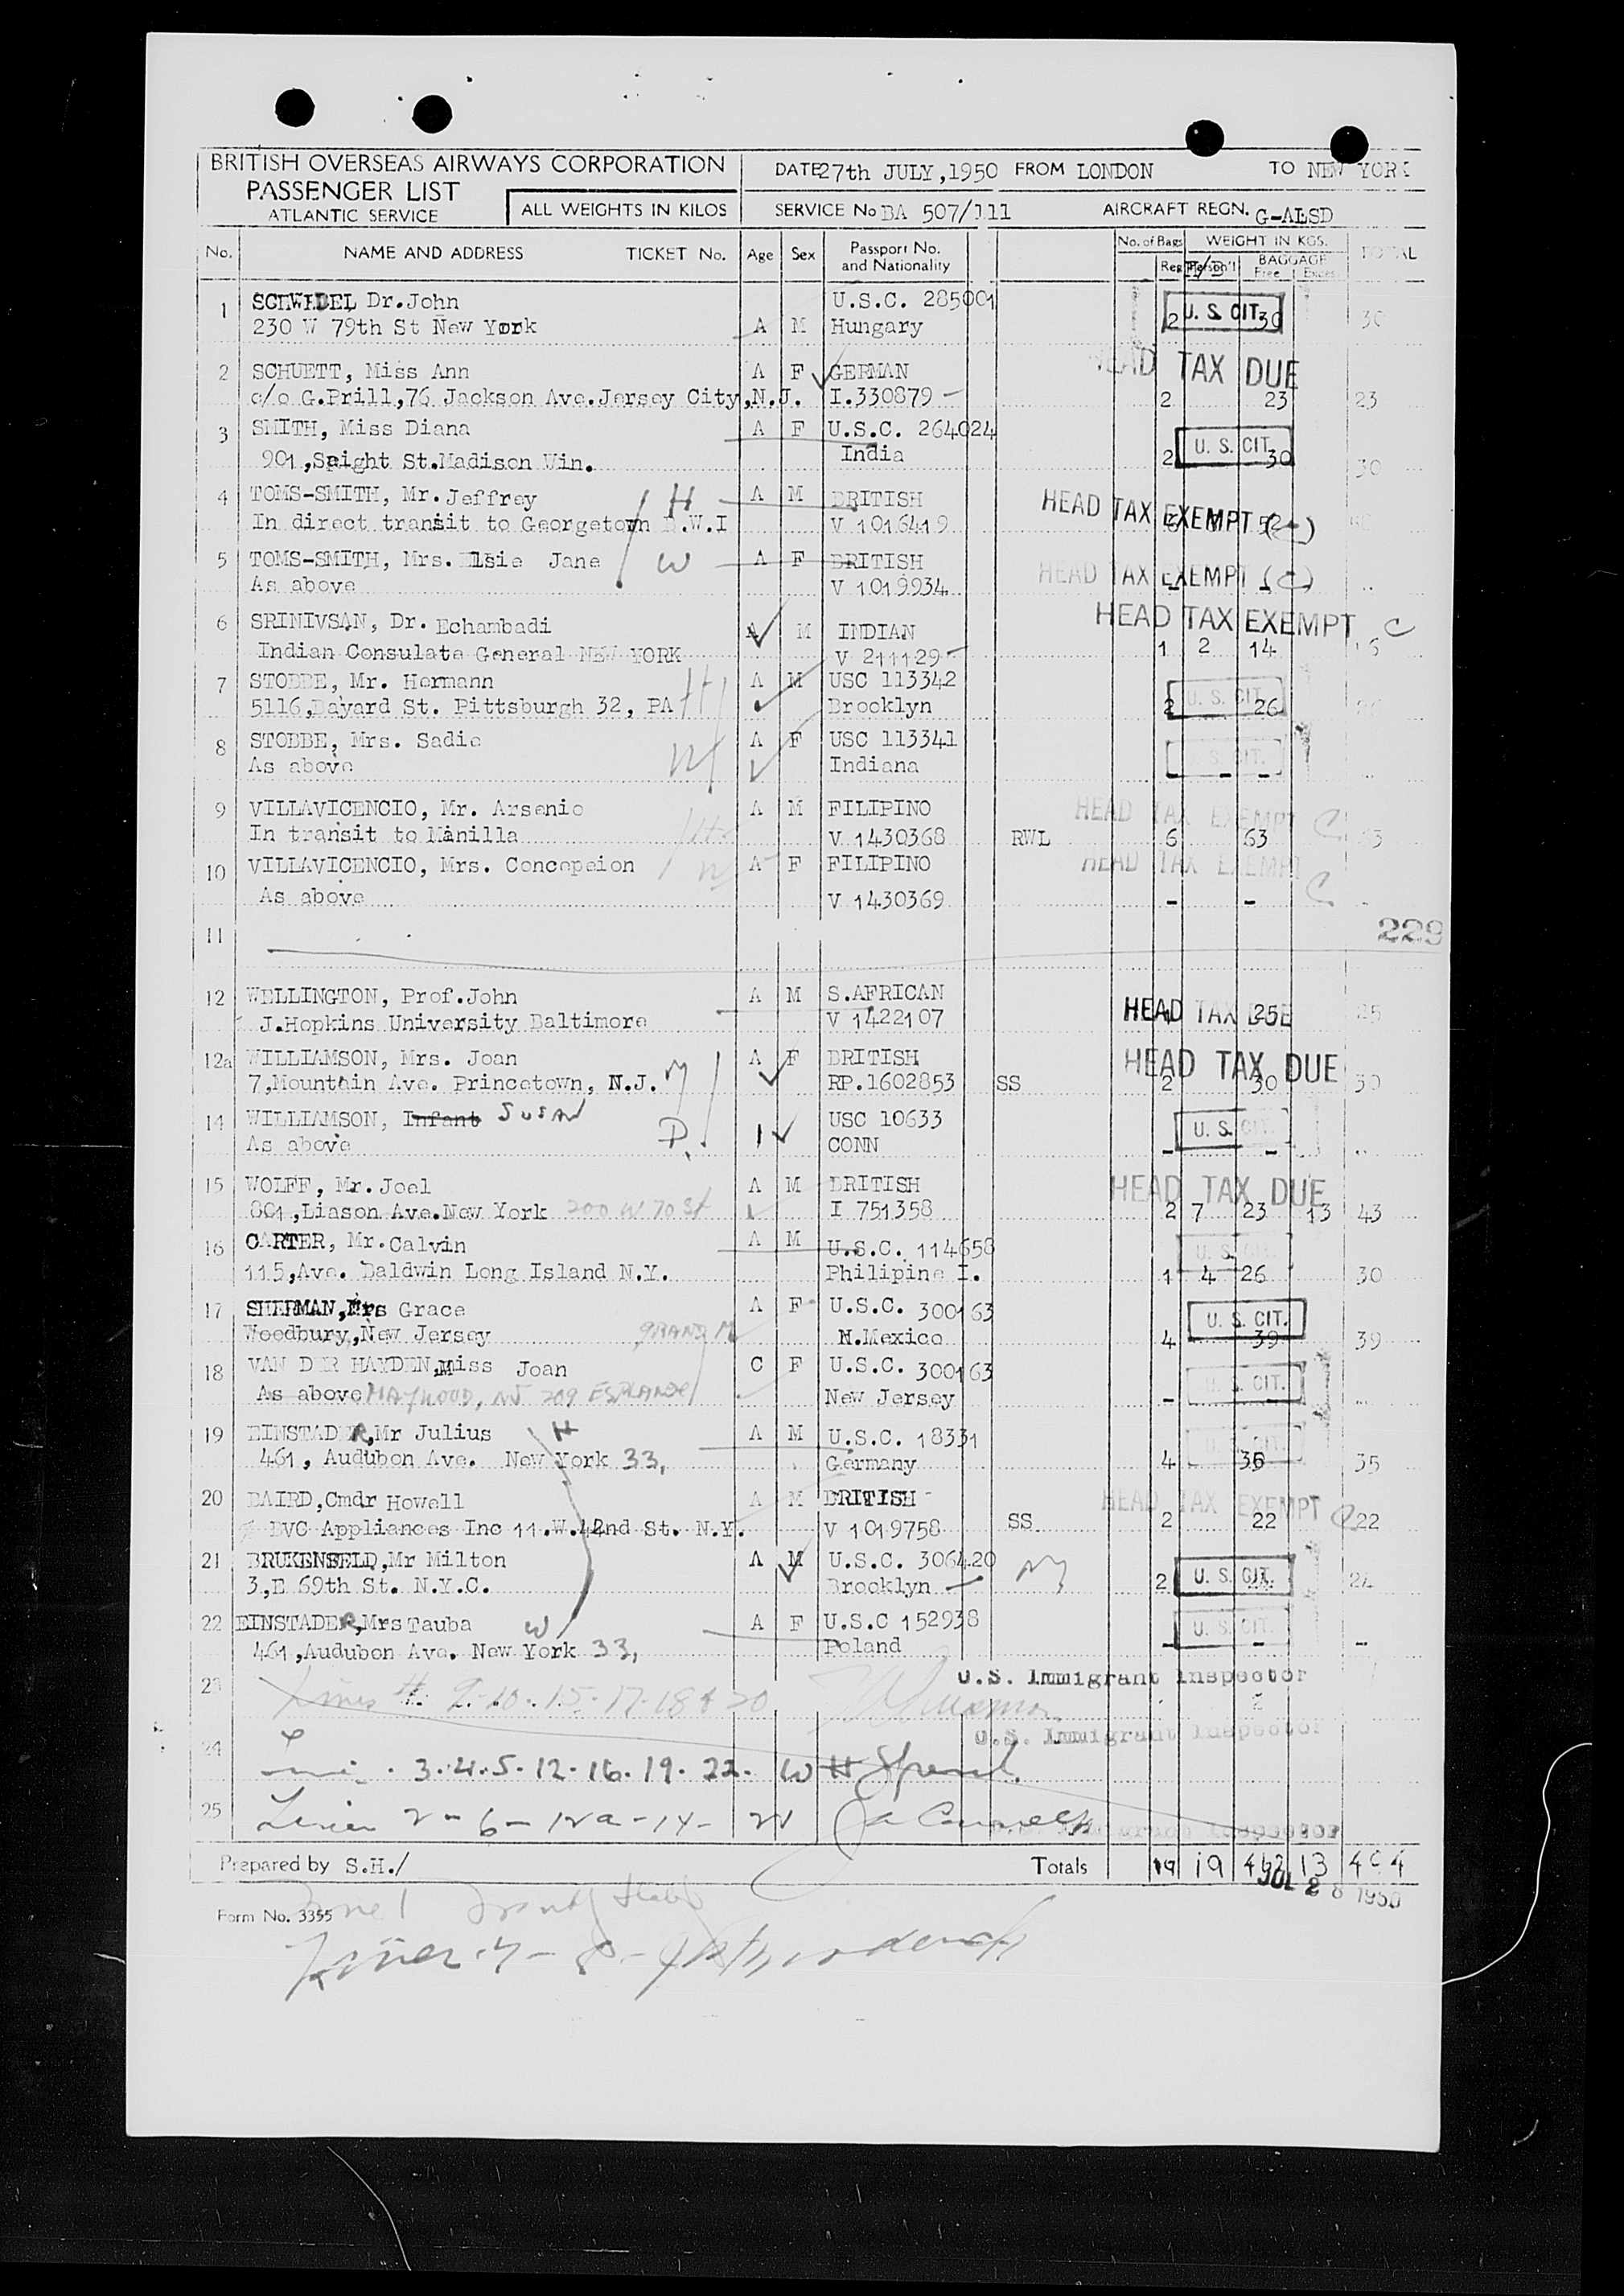 BRITISH OVERSEAS AIRWAYS CORPORATION
PASSENGER LIST
ATLANTIC SERVICE
ALL WEIGHTS IN KILOS
DATE 27th JULY,1950 FROM LONDON TO NEW YORK
SERVICE No BA 507/111 AIRCRAFT REGN. G-ALSD
No. NAME AND ADDRESS TICKET No. Age Sex Passport No. and Nationality No. of Bags WEIGHT IN KGS. TOTAL
Reg Person'l BAGGAGE Free Excess
1 Dr. John U.S.C. 285001 U. S. CIT.
230 W 79th St New York A M Hungary 2 30 30
HEAD TAX DUE
2 SCHUETT, Miss Ann A F GERMAN
c/o G.Prill,76 Jackson Ave.Jersey City,N.J. I.330879 2 23 23
3 SMITH, Miss Diana A F U.S.C. 264024 U. S. CIT.
901,Spight St.Madison Win. India 2 30 30
4 TOMS-SMITH, Mr. Jeffrey H A M BRITISH HEAD TAX EXEMPT (C)
In direct transit to Georgetown B.W.I V 1016419
5 TOMS-SMITH, Mrs. Elsie Jane W A F BRITISH HEAD TAX EXEMPT (C)
As above V 1019934
6 SRINIVSAN, Dr. Echambadi A M INDIAN HEAD TAX EXEMPT C
Indian Consulate General NEW YORK V 211129 1 2 14 16
7 STOBBE, Mr. Hermann H A M USC 113342 U. S. CIT.
5116,Bayard St. Pittsburgh 32, PA Brooklyn 2 26
8 STOBBE, Mrs. Sadie W A F USC 113341 U. S. CIT.
As above Indiana - - -
9 VILLAVICENCIO, Mr. Arsenio A M FILIPINO HEAD TAX EXEMPT C
In transit to Manilla V 1430368 RWL 6 63 63
10 VILLAVICENCIO, Mrs. Concepcion W A F FILIPINO HEAD TAX EXEMPT C
As above V 1430369 - -
11 229
12 WELLINGTON, Prof.John A M S.AFRICAN HEAD TAX DUE
J.Hopkins University Baltimore V 1422107 25 25
12a WILLIAMSON, Mrs. Joan M A F BRITISH HEAD TAX DUE
7,Mountain Ave. Princetown, N.J. RP.1602853 SS 2 30 30
14 WILLIAMSON, Infant SUSAN 1 USC 10633 U. S. CIT.
As above D. CONN - -
15 WOLFF, Mr. Joel A M BRITISH HEAD TAX DUE
801,Liason Ave.New York 200 W 70 St I 751358 2 7 23 13 43
16 CARTER, Mr. Calvin A M U.S.C. 114658 U. S. CIT.
115,Ave. Baldwin Long Island N.Y. Philipine I. 1 4 26 30
17 SHERMAN,Mrs Grace A F U.S.C. 300163 U. S. CIT.
Woodbury,New Jersey GRAND M N.Mexico 4 39 39
18 VAN DER HAYDEN,Miss Joan C F U.S.C. 300163 U. S. CIT.
As above MAYWOOD, NJ 209 New Jersey - -
19 EINSTADER,Mr Julius H A M U.S.C. 18331 U. S. CIT.
461, Audubon Ave. New York 33, Germany 4 35
20 BAIRD,Cmdr Howell A M BRITISH HEAD TAX EXEMPT C
BVC Appliances Inc 11.W.42nd St. N.Y. V 1019758 SS 2 22 22
21 Mr Milton A M U.S.C. 306420 M U. S. CIT.
3,E 69th St. N.Y.C. Brooklyn 2
22 EINSTADER,Mrs Tauba W A F U.S.C 152938 U. S. CIT.
461,Audubon Ave. New York 33, Poland - - -
U.S. Immigrant Inspector
23 Lines # 9-10-15-17-18 & 20
U.S. Immigrant Inspector
24 3.4.5.12.16.19.22. W H
25 Lines 2-6-12a-14-21
Prepared by S.H./ Totals 19 13
JUL 28 1950
Form No. 3355
Lines 7-8-